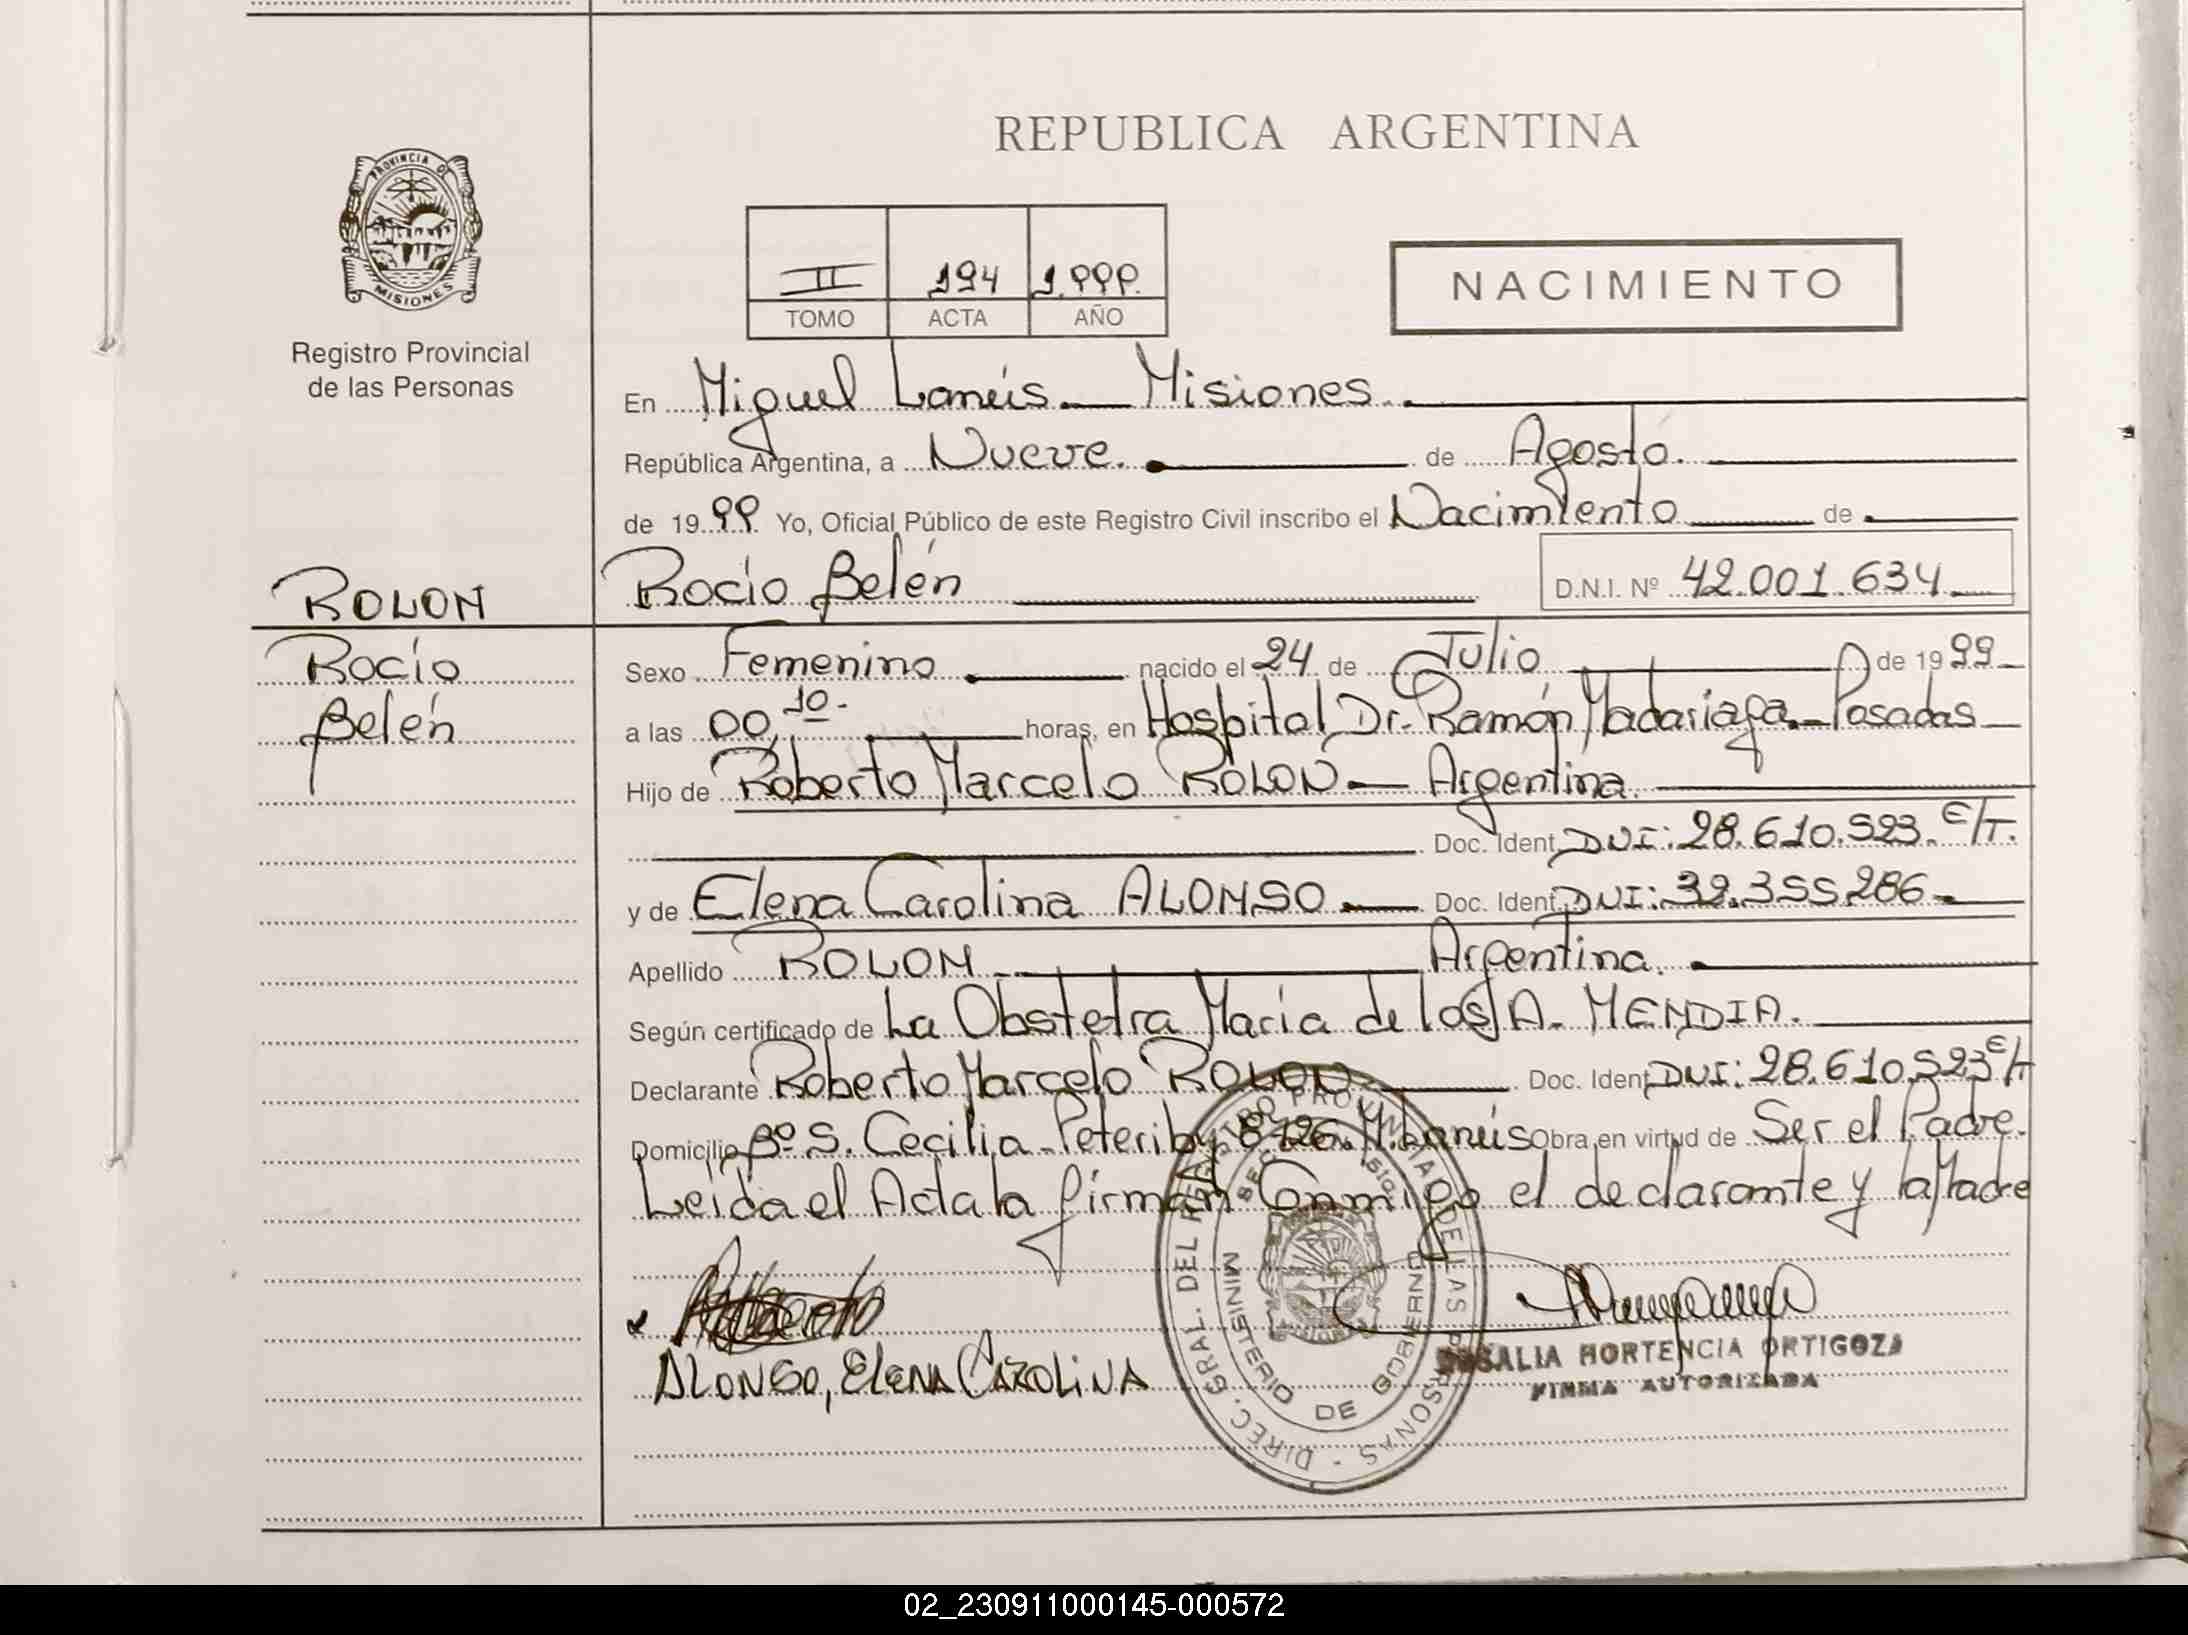 REPUBLICA ARGENTINA
PROVINCIA DE
MISIONES
Registro Provincial
de las Personas
II 194 1.999.
TOMO ACTA AÑO
NACIMIENTO
En Miguel Lanús. Misiones.
República Argentina, a Nueve. de Agosto.
de 1999. Yo, Oficial Público de este Registro Civil inscribo el Nacimiento de
ROLON
Rocío Belén D.N.I. Nº 42.001.634
Rocío
Belén
Sexo Femenino nacido el 24 de Julio de 1999
a las 00,10- horas, en Hospital Dr. Ramón Madariaga. Posadas
Hijo de Roberto Marcelo ROLON Argentina.
Doc. Ident. DNI: 28.610.523. E/T.
y de Elena Carolina ALONSO Doc. Ident. DNI: 32.355.286
Apellido ROLON Argentina.
Según certificado de La Obstetra María de los A. MENDIA.
Declarante Roberto Marcelo ROLON Doc. Ident. DNI: 28.610.523 E/T
Domicilio Bº S. Cecilia- 8126. M. Lanús Obra en virtud de Ser el Padre.
Leida el Acta la firman Conmigo el declarante y la Madre
ALONSO, ELENA CAROLINA
ROSALIA HORTENCIA ORTIGOZA
FIRMA AUTORIZADA
DIREC. GRAL. DEL REGISTRO PROVINCIAL DE LAS PERSONAS
MINISTERIO DE GOBIERNO
02_230911000145-000572